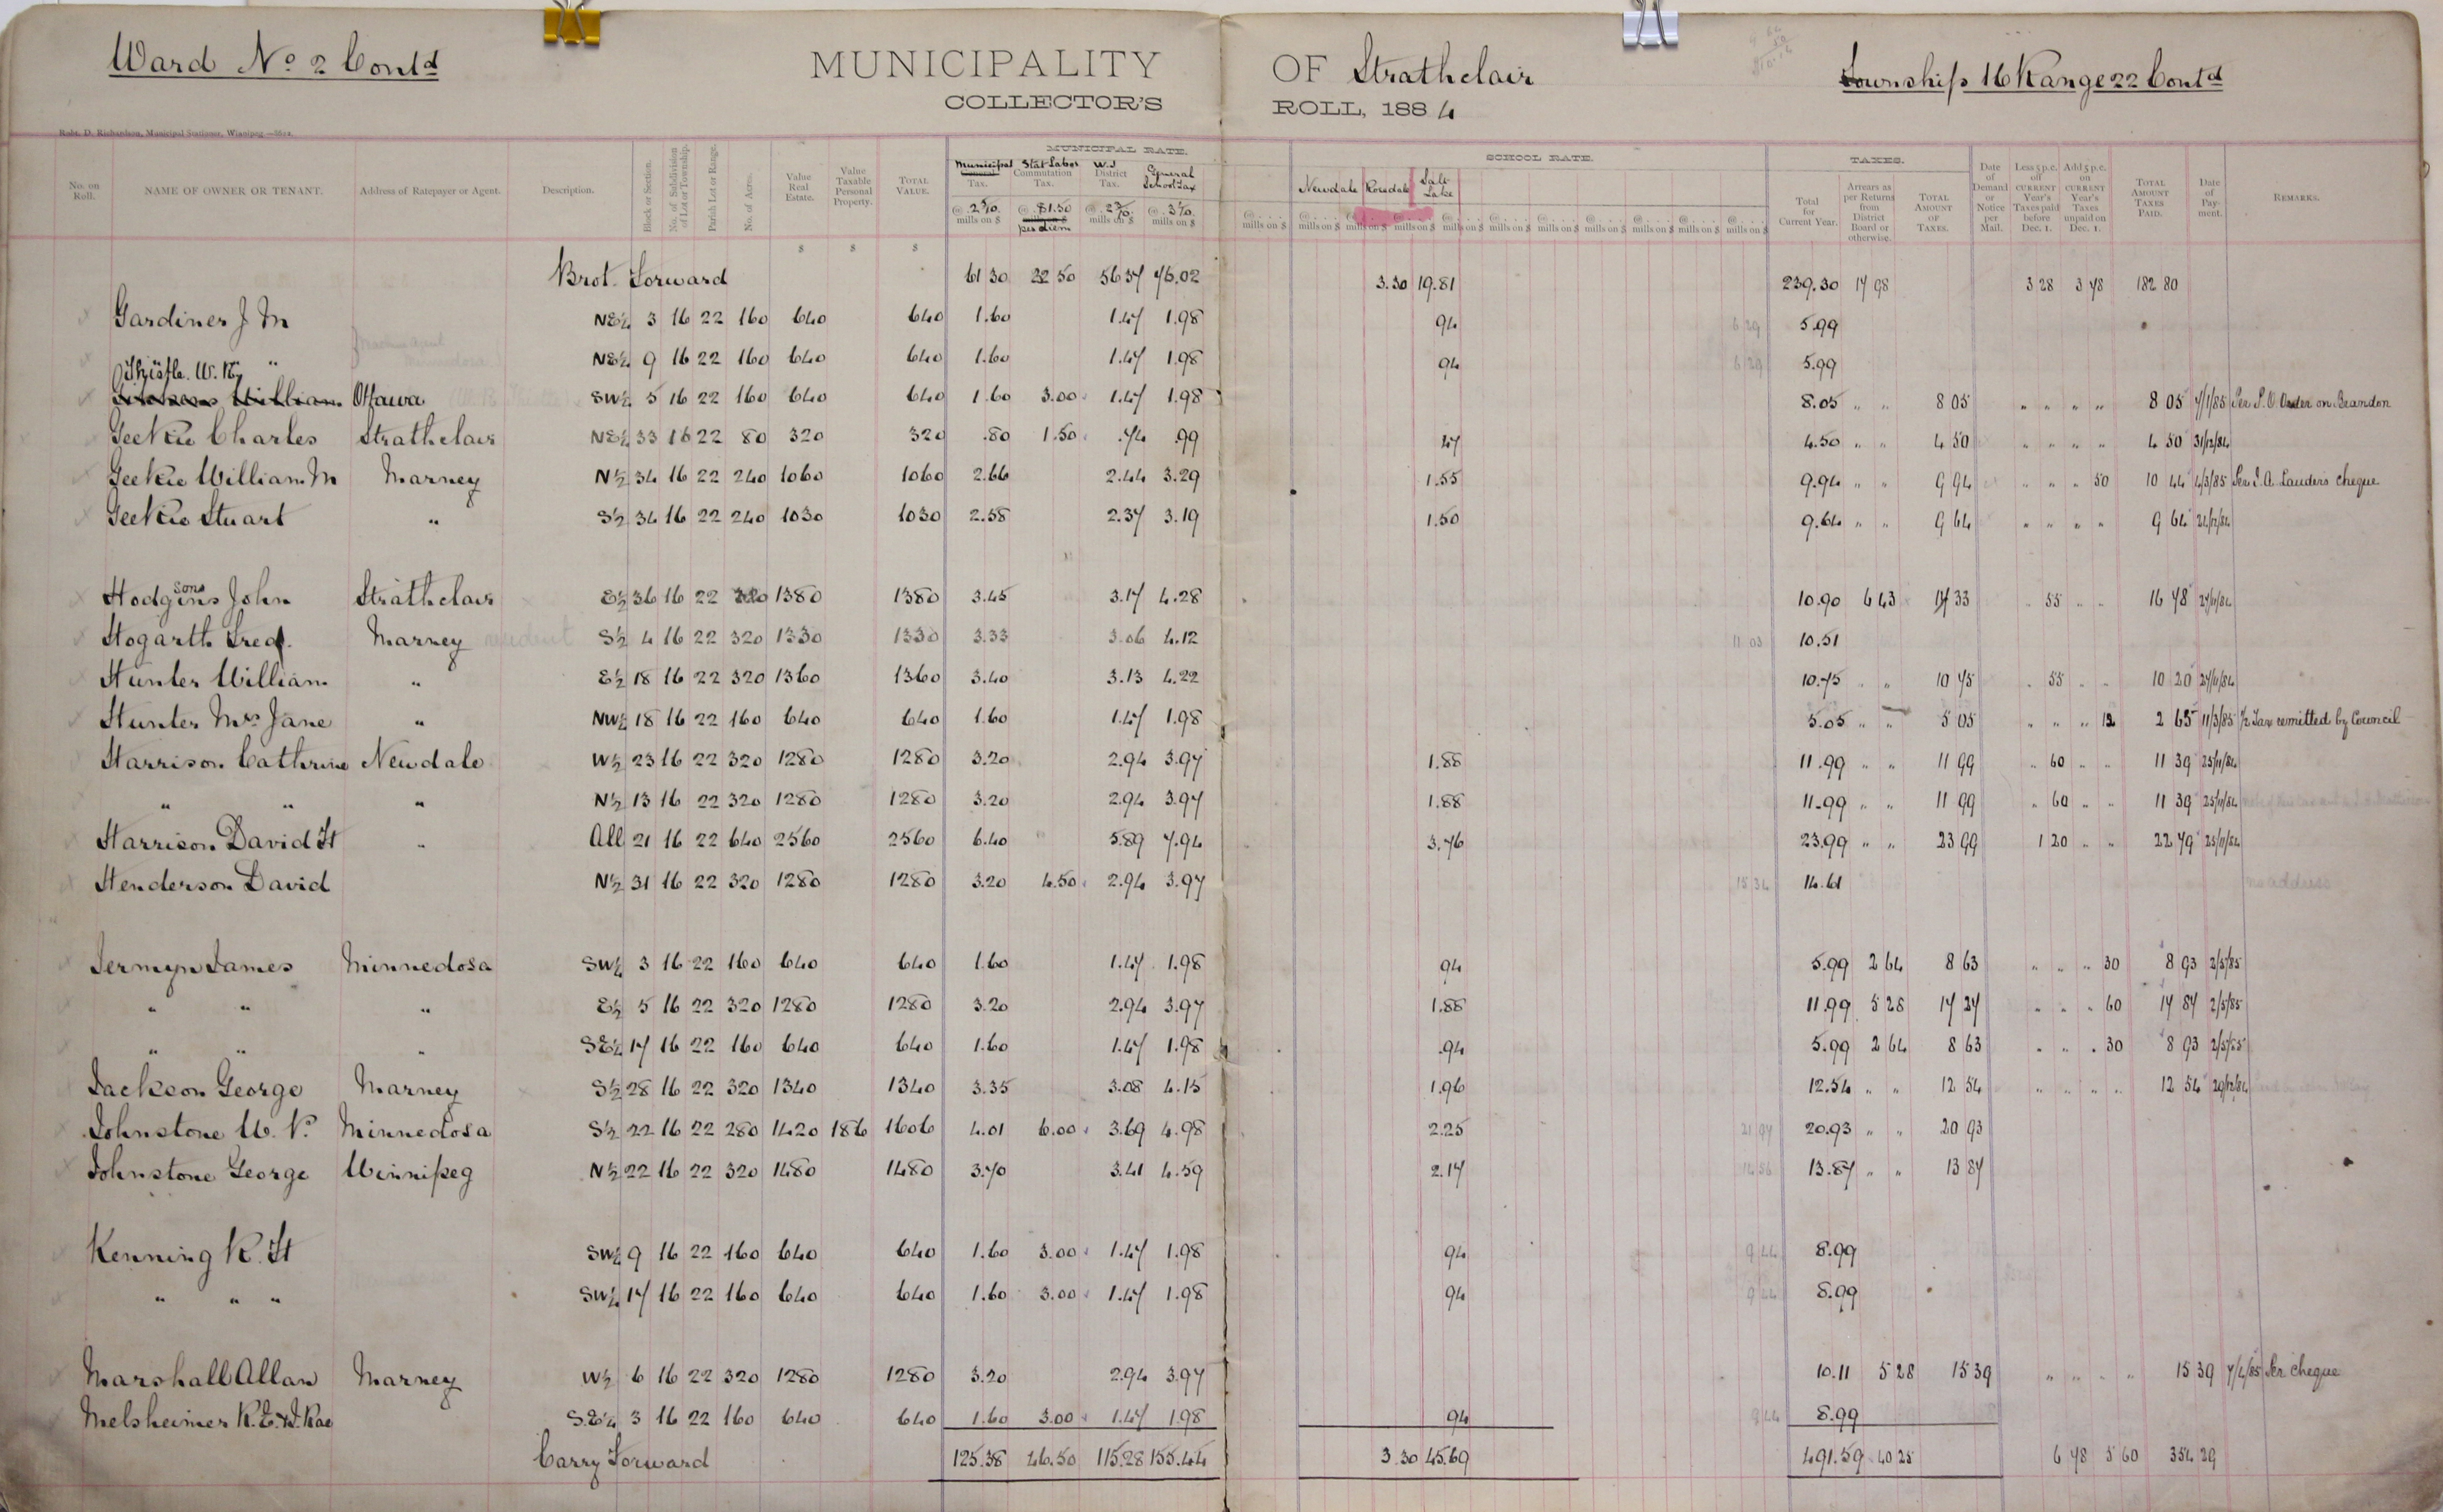 Ward No 2 Contd
MUNICIPALITY OF Strathclair
Township 16 Range 22 Contd
COLLECTOR'S ROLL, 188 4
Robt. D. Richardson, Municipal Stationer, Winnipeg
MUNICIPAL RATE. SCHOOL RATE. TAXES.
No. on Roll. NAME OF OWNER OR TENANT. Address of Ratepayer or Agent. Description. Block or Section. No. of Subdivision of Lot or Township. Parish Lot or Range. No. of Acres. Value Real Estate. Value Taxable Personal Property. TOTAL VALUE. Municipal General Tax. @ 2 5/10 mills on $ Stat Labor Commutation Tax. @ $1.50 mills on $ per diem W.J District Tax. @ 2 3/10 mills on $ General School Tax @ 3 1/10 mills on $ Newdale Rosedale Salt Lake Total for Current Year. Arrears as per Returns from District Board or otherwise. TOTAL AMOUNT OF TAXES. Date of Demand or Notice per Mail. Less 5 p.c. off CURRENT Year's Taxes paid before Dec. 1. Add 5 p.c. on CURRENT Year's Taxes unpaid on Dec. 1. TOTAL AMOUNT TAXES PAID. Date of Payment. REMARKS.
Brot. Forward 61 30 22 50 56 37 76.02 3.30 19.81 239.30 17 98 3 28 3 78 182 80
Gardiner J M NE¼ 3 16 22 160 640 640 1.60 1.47 1.98 94 6 29 5.99
" NE¼ 9 16 22 160 640 640 1.60 1.47 1.98 94 6 29 5.99
Thistle. W. Ky
William Ottawa SW¼ 5 16 22 160 640 640 1.60 3.00 1.47 1.98 8.05 " " 8 05 " " " " 8 05 7/1/85 Per P.O Order on Brandon
Geekie Charles Strathclair NE¼ 33 16 22 80 320 320 .80 1.50 .74 .99 47 4.50 " " 4 50 " " " " 4 50 31/12/84
Geekie William M Marney N½ 34 16 22 240 1060 1060 2.66 2.44 3.29 1.55 9.94 " " 9 94 " " " 50 10 44 4/3/85 Per J.A. Lauders cheque
Geekie Stuart " S½ 34 16 22 240 1030 1030 2.58 2.37 3.19 1.50 9.64 " " 9 64 " " " " 9 64 24/12/84
Hodgins sons John Strathclair E½ 36 16 22 320 1380 1380 3.45 3.17 4.28 10.90 6 43 17 33 " 55 " " 16 78 27/11/84
Hogarth Fred. Marney resident S½ 4 16 22 320 1330 1330 3.33 3.06 4.12 11 03 10.51
Hunter William " E½ 18 16 22 320 1360 1360 3.40 3.13 4.22 10.75 " " 10 75 " 55 " " 10 20 27/11/84
Hunter Mrs Jane " NW¼ 18 16 22 160 640 640 1.60 1.47 1.98 5.05 " " 5 05 " " " 12 2 65 11/3/85 ½ Tax remitted by Council
Harrison Cathrine Newdale W½ 23 16 22 320 1280 1280 3.20 2.94 3.97 1.88 11.99 " " 11 99 " 60 " " 11 39 25/11/84
" " " N½ 13 16 22 320 1280 1280 3.20 2.94 3.97 1.88 11.99 " " 11 99 " 60 " " 11 39 25/11/84
Harrison David H " All 21 16 22 640 2560 2560 6.40 5.89 7.94 3.76 23.99 " " 23 99 1 20 " " 22 79 25/11/84
Henderson David N½ 31 16 22 320 1280 1280 3.20 4.50 2.94 3.97 15 34 14.61 no address
Jermyn James Minnedosa SW¼ 3 16 22 160 640 640 1.60 1.47 1.98 94 5.99 2 64 8 63 " " " 30 8 93 2/5/85
" " " E½ 5 16 22 320 1280 1280 3.20 2.94 3.97 1.88 11.99 5 28 17 27 " " " 60 17 87 2/5/85
" " " SE¼ 17 16 22 160 640 640 1.60 1.47 1.98 .94 5.99 2 64 8 63 " " " 30 8 93 2/5/85
Jackson George Marney S½ 28 16 22 320 1340 1340 3.35 3.08 4.15 1.96 12.54 " " 12 54 " " " " 12 54 29/12/84
Johnstone W. P. Minnedosa S½ 22 16 22 280 1420 186 1606 4.01 6.00 3.69 4.98 2.25 21 97 20.93 " " 20 93
Johnstone George Winnipeg N½ 22 16 22 320 1480 1480 3.70 3.41 4.59 2.17 14 56 13.87 " " 13 87
Kenning R. H SW¼ 9 16 22 160 640 640 1.60 3.00 1.47 1.98 94 9 44 8.99
" " " SW¼ 17 16 22 160 640 640 1.60 3.00 1.47 1.98 94 9 44 8.99
Marshall Allan Marney W½ 6 16 22 320 1280 1280 3.20 2.94 3.97 10.11 5 28 15 39 " " " " 15 39 7/4/85 Per cheque
Melsheimer R. E. & J. Rae S.E¼ 3 16 22 160 640 640 1.60 3.00 1.47 1.98 94 9 44 8.99
Carry Forward 125.38 46.50 115.28 155.44 3.30 45.69 491.59 40 25 6 78 5 60 354 29